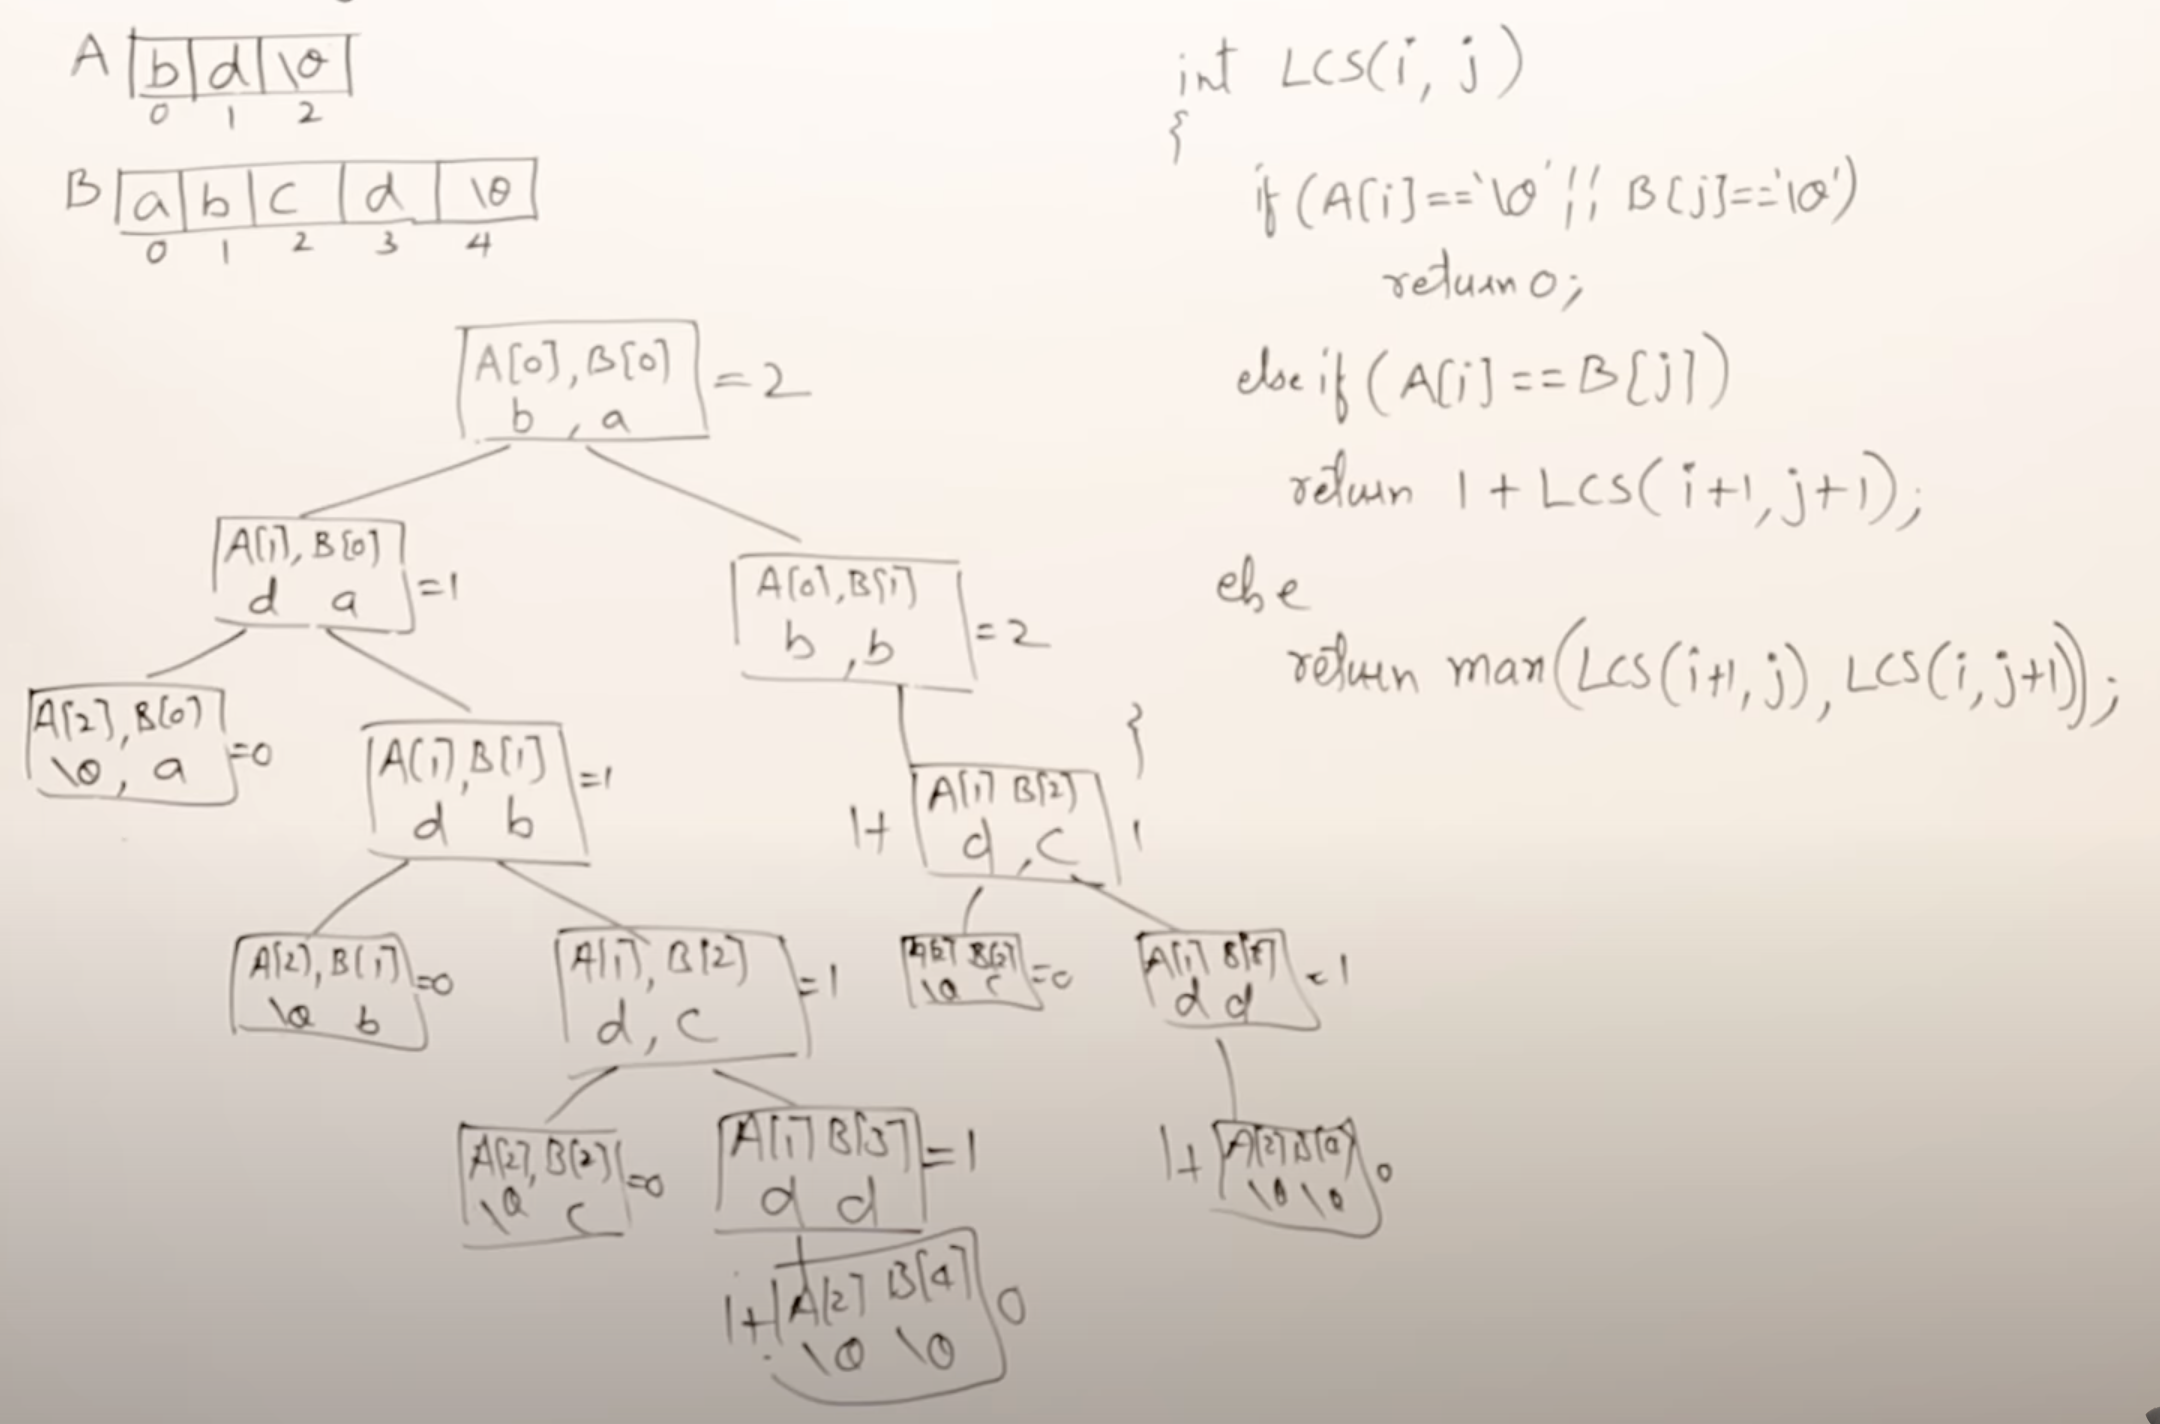 A b d \0
0 1 2
B a b c d \0
0 1 2 3 4
A[0], B[0] = 2
b , a
A[1], B[0] = 1
d a
A[0], B[1] = 2
b , b
A[2], B[0] = 0
\0 , a
A[1], B[1] = 1
d b
1+ A[1] B[2] 1
d , c
A[2], B[1] = 0
\0 b
A[1], B[2] = 1
d , c
A[2] B[2] = 0
\0 c
A[1] B[3] = 1
d d
A[2], B[2] = 0
\0 c
A[1] B[3] = 1
d d
1+ A[2] B[4] 0
\0 \0
1+ A[2] B[4] 0
\0 \0
int LCS(i, j)
{
if (A[i]=='\0' || B[j]=='\0')
return 0;
else if (A[i] == B[j])
return 1 + LCS(i+1, j+1);
else
return max(LCS(i+1, j), LCS(i, j+1));
}